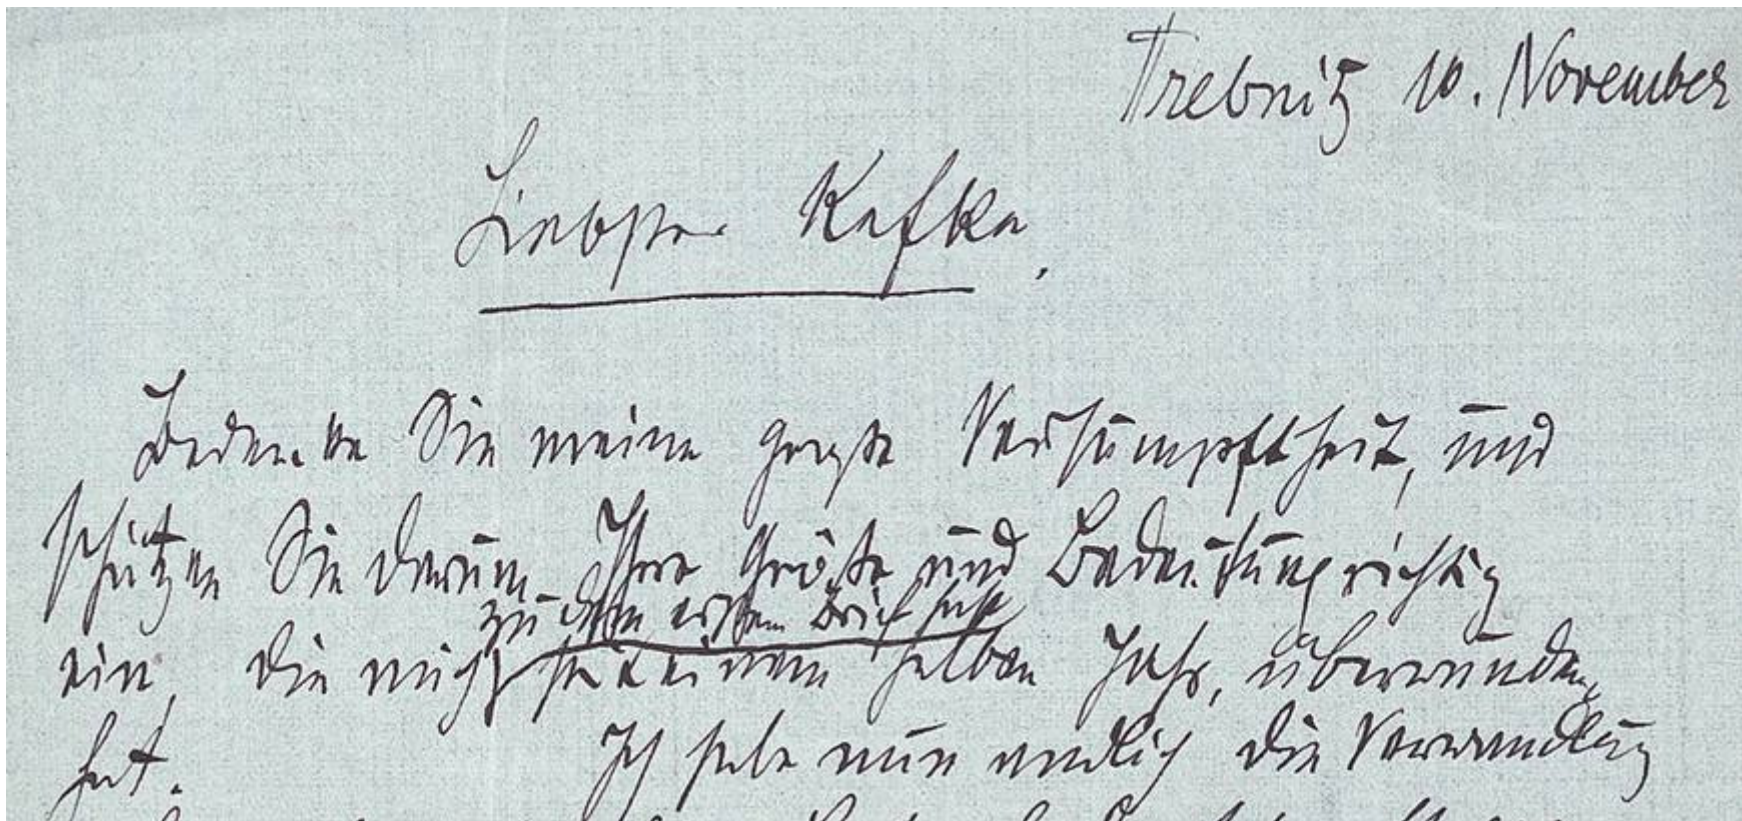 Trebnitz 10. November
Liebster Kafka,
Bedenken Sie meine große Versumpftheit, und
schätzen Sie darum Ihre Größe und Bedeutung richtig
zu dem ersten Brief seit
ein, die mich seit einem halben Jahr, überwunden
hat. Ich habe nun endlich die Verwandlung